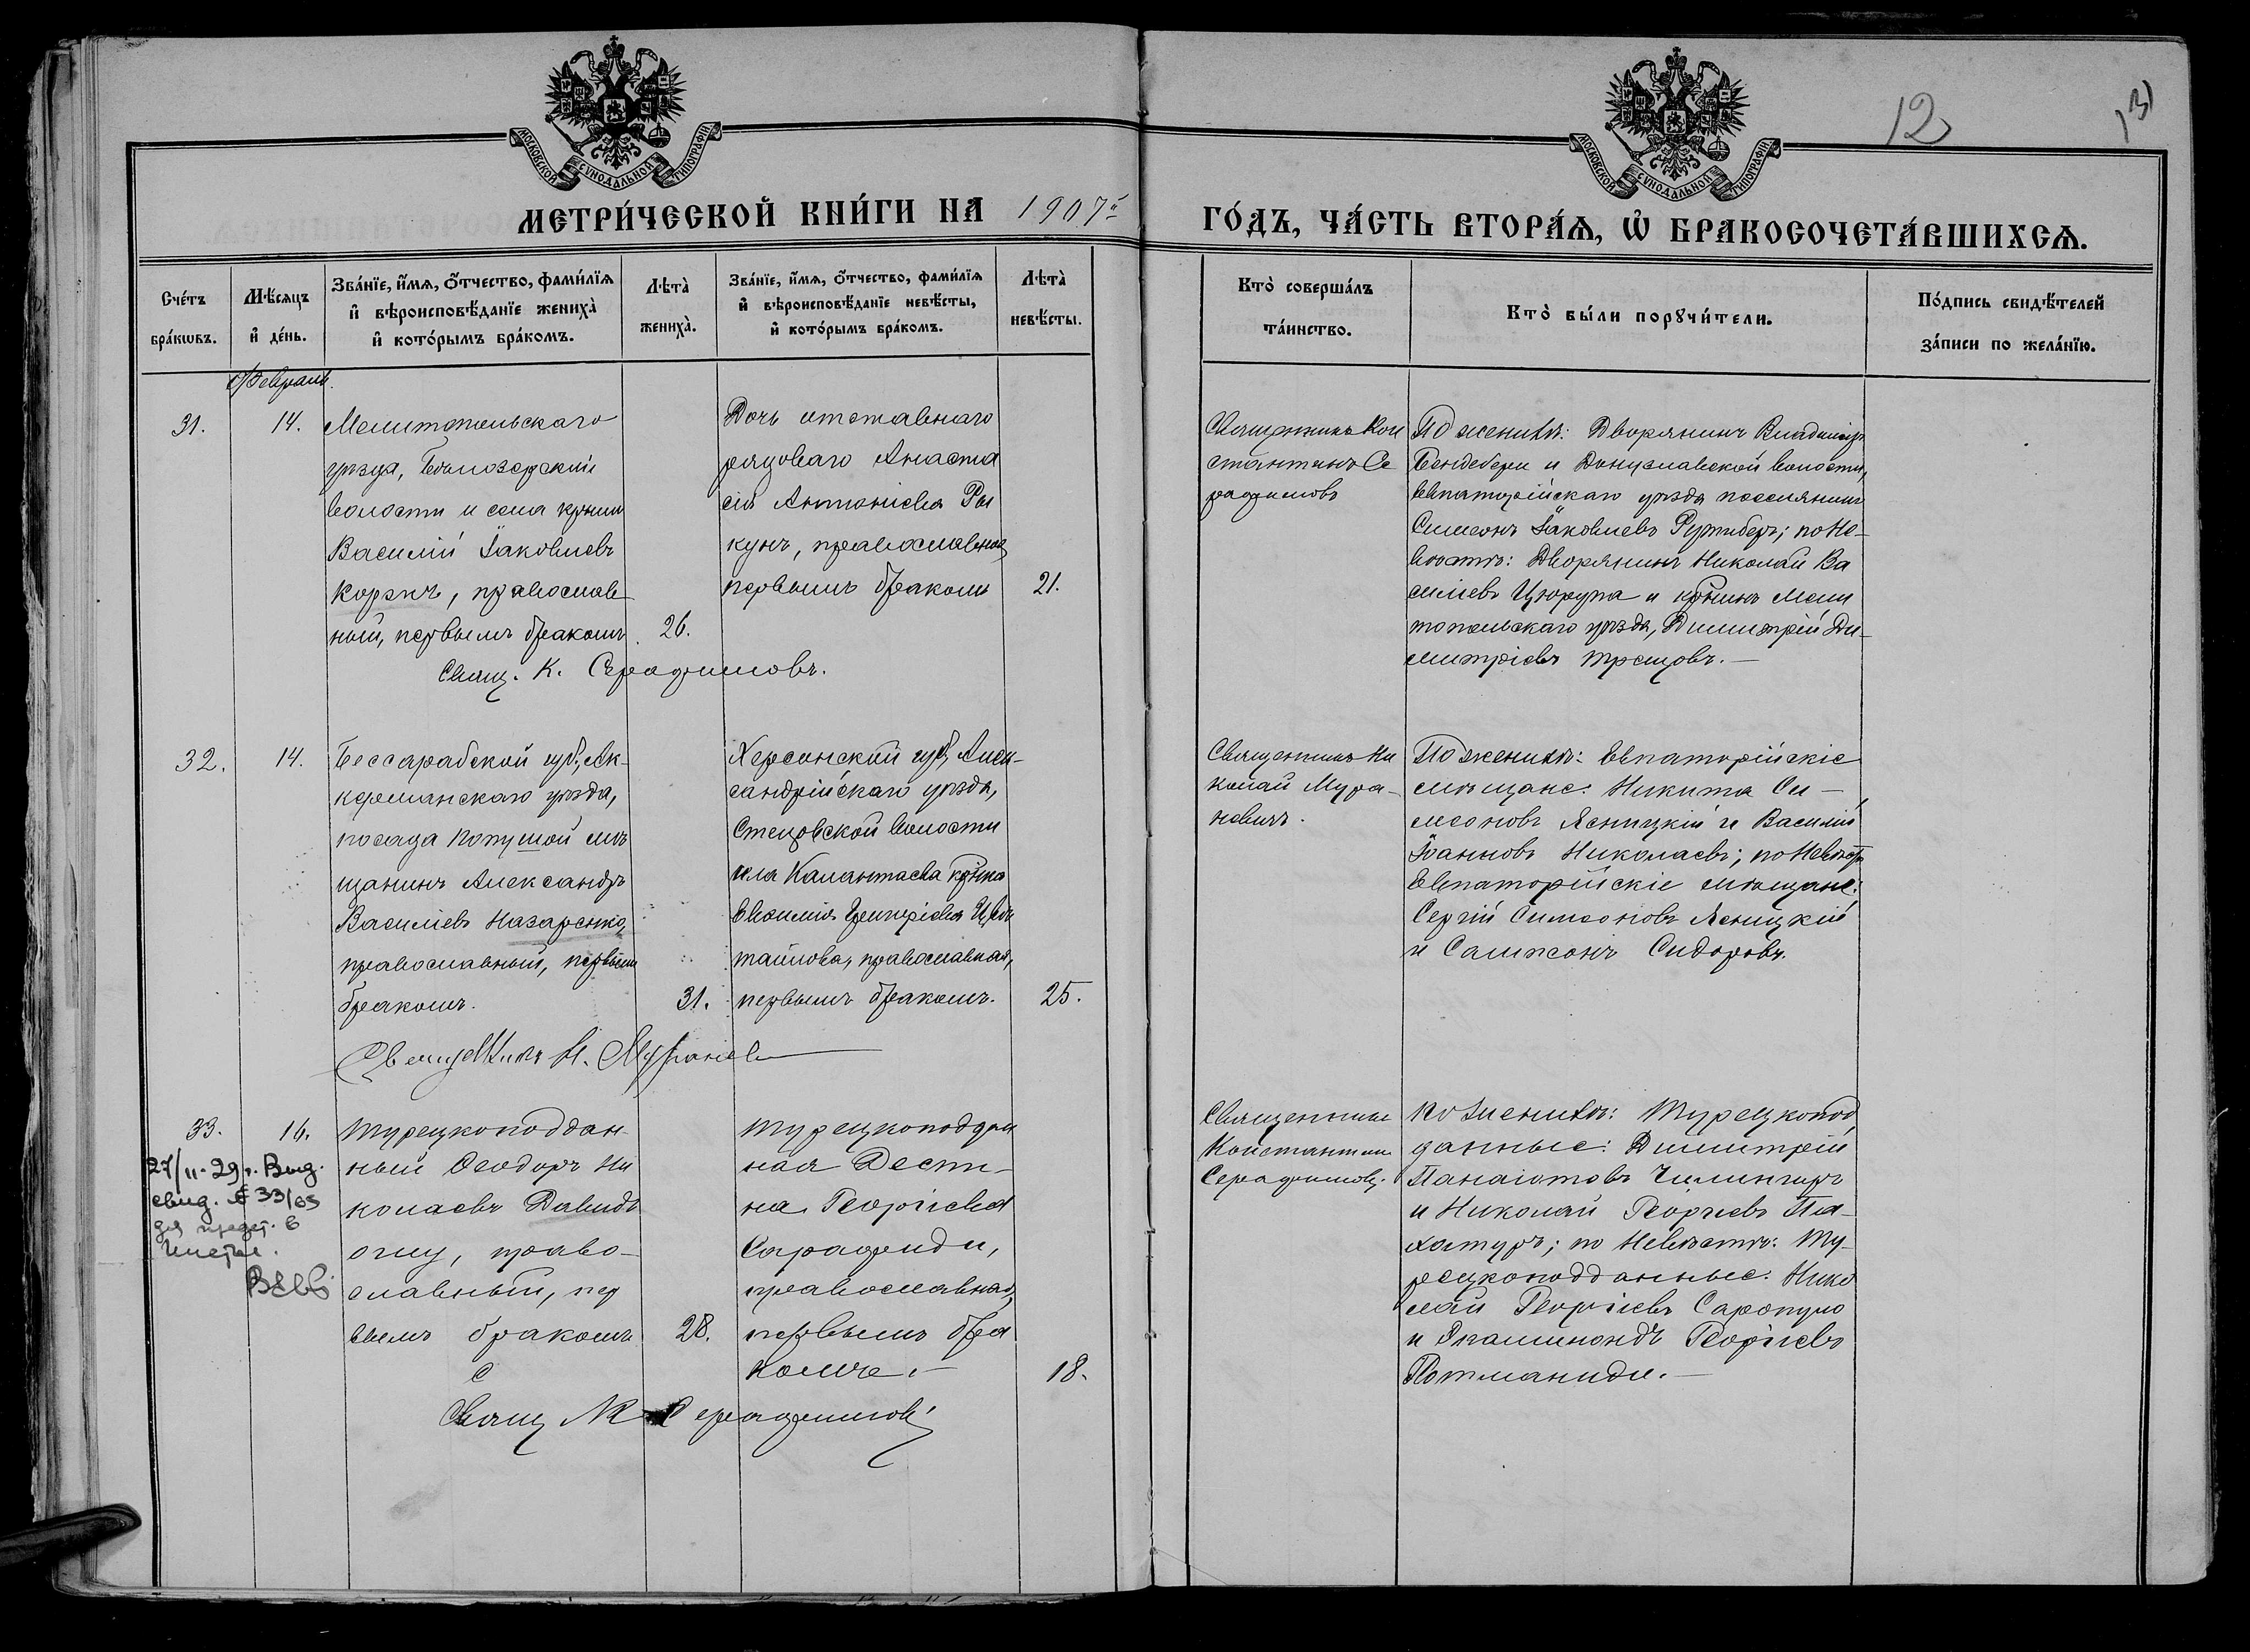 МОСКОВСКОЙ СѴНОДАЛЬНОЙ ТИПОГРАФІИ
МОСКОВСКОЙ СѴНОДАЛЬНОЙ ТИПОГРАФІИ
12
13
МЕТРИ́ЧЕСКОЙ КНИ́ГИ НА 1907й
ГО́ДЪ, ЧА́СТЬ ВТОРА́Ѧ, Ѡ҆ БРАКОСОЧЕТА́ВШИХСѦ.
Сче́тъ бра́кѡвъ.
Мѣ́сяцъ и҆ де́нь.
Зва́нїе, и҆́мѧ, ѻ҆́тчество, фами́лїѧ
и҆ вѣроисповѣ́данїе жениха̀
и҆ кото́рымъ бра́комъ.
Лѣта̀ жениха̀.
Зва́нїе, и҆́мѧ, ѻ҆́тчество, фами́лїѧ
и҆ вѣроисповѣ́данїе невѣ́сты,
и҆ кото́рымъ бра́комъ.
Лѣта̀ невѣ́сты.
Кто̀ соверша́лъ
та́инство.
Кто̀ бы́ли порꙋчи́тели.
По́дпись свидѣ́телей
за́писи по жела́нїю.
Февраль.
31.
14.
Мелитопольскаго
уѣзда, Бѣлозерской
волости и села крнин
Василій Іаковлевъ
Корзкъ, православ
ный, первымъ бракомъ
26.
Дочь отставнаго
рядоваго Анаста
сія Антоніева
кунъ, православная
первымъ бракомъ
21.
Священникъ Кон
стантинъ Се
рафимовъ
По женихѣ: Дворянинъ Владиміръ
и Донузлавской волости,
Евпаторійскаго уѣзда поселянинъ
Симеонъ Іаковлевъ; по не-
вѣстѣ: Дворянинъ Николай Ва
силіевъ Цюрупа и крнинъ Мели
топольскаго уѣзда, Димитрій Ди-
митріевъ Трещовъ.—
Свящ. К. Серафимовъ.
32.
14.
Бессарабской губ, Ак-
керманскаго уѣзда,
посада мѣ
щанинъ Александръ
Василіевъ Назаренко,
православный, первымъ
бракомъ.
31.
Херсонской губ, Алек-
сандрійскаго уѣзда,
Стецовской волости
села Калантаева крнка
Евфимія Григоріева
православная,
первымъ бракомъ.
25.
Священникъ Ни
колай Мура-
невичъ.
По женихѣ: Евпаторійскіе
мѣщане: Никита Си-
меоновъ Ясницкій и Василій
Іоанновъ Николаевъ; по невѣстѣ
Евпаторійскіе мѣщане:
Сергій Симеоновъ Ясницкій
и Сампсонъ Сидоровъ.
Священникъ Н. Муранев
33.
16.
27/II-29г. Выд.
свид. № 33/63
для предст. в
Турецкоподдан
ный Ѳеодоръ Ни
колаевъ Давидъ
оглу, право-
славный, пер
вымъ бракомъ
28.
Турецкоподдан
ная Дести-
на Георгіева
Сарафиди,
православная,
первымъ бра
комъ.—
18.
Священникъ
Константинъ
Серафимовъ.
По женихѣ: Турецкопод
данные: Димитрій
Панаіотовъ Чилингиръ
и Николай Георгіевъ Па-
хатуръ; по невѣстѣ: Ту-
рецкоподданные: Нико
лай Георгіевъ Саропуло
и Эпаминондъ Георгіевъ
Потманиди.—
с
Свящ К Серафимовъ